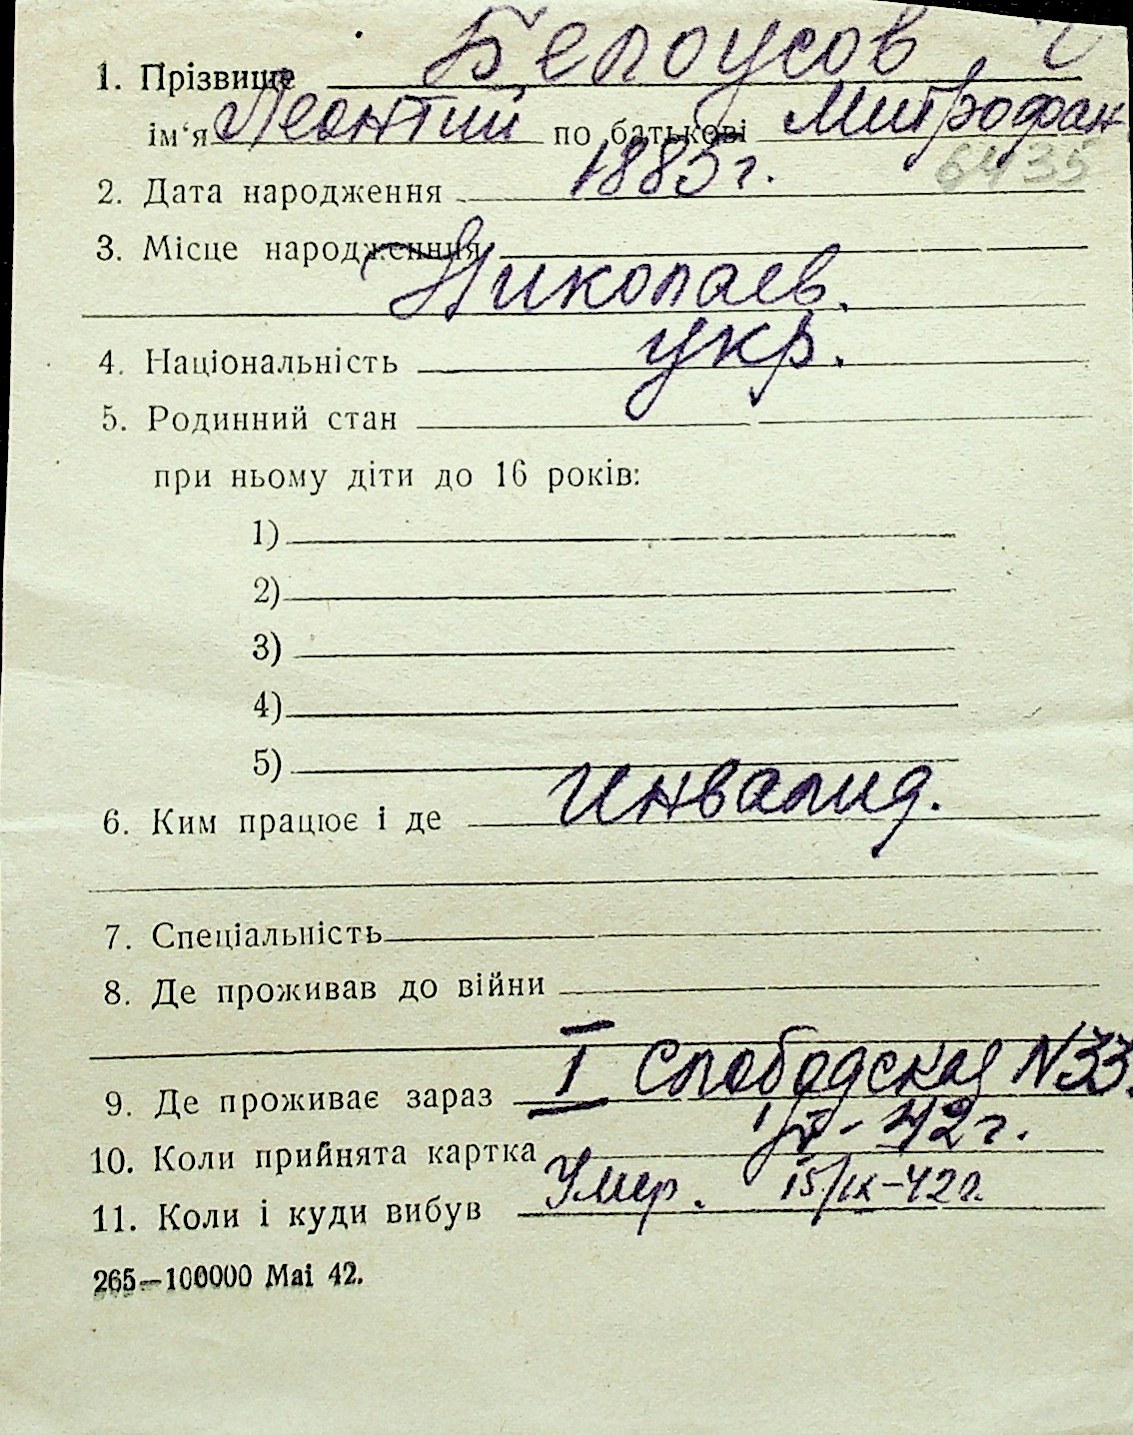 1. Прізвище Белоусов
ім‘я Леонтий по батькові Митрофан
6435
2. Дата народження 1883 г.
3. Місце народження
Николаев.
4. Національність укр.
5. Родинний стан
при ньому діти до 16 років:
1)
2)
3)
4)
5)
6. Ким працює і де Инвалид.
7. Спеціальність
8. Де проживав до війни
9. Де проживає зараз I Слободская N33.
10. Коли прийнята картка 42 г.
11. Коли і куди вибув Умер. 15/IX-42г.
265—100000 Mai 42.